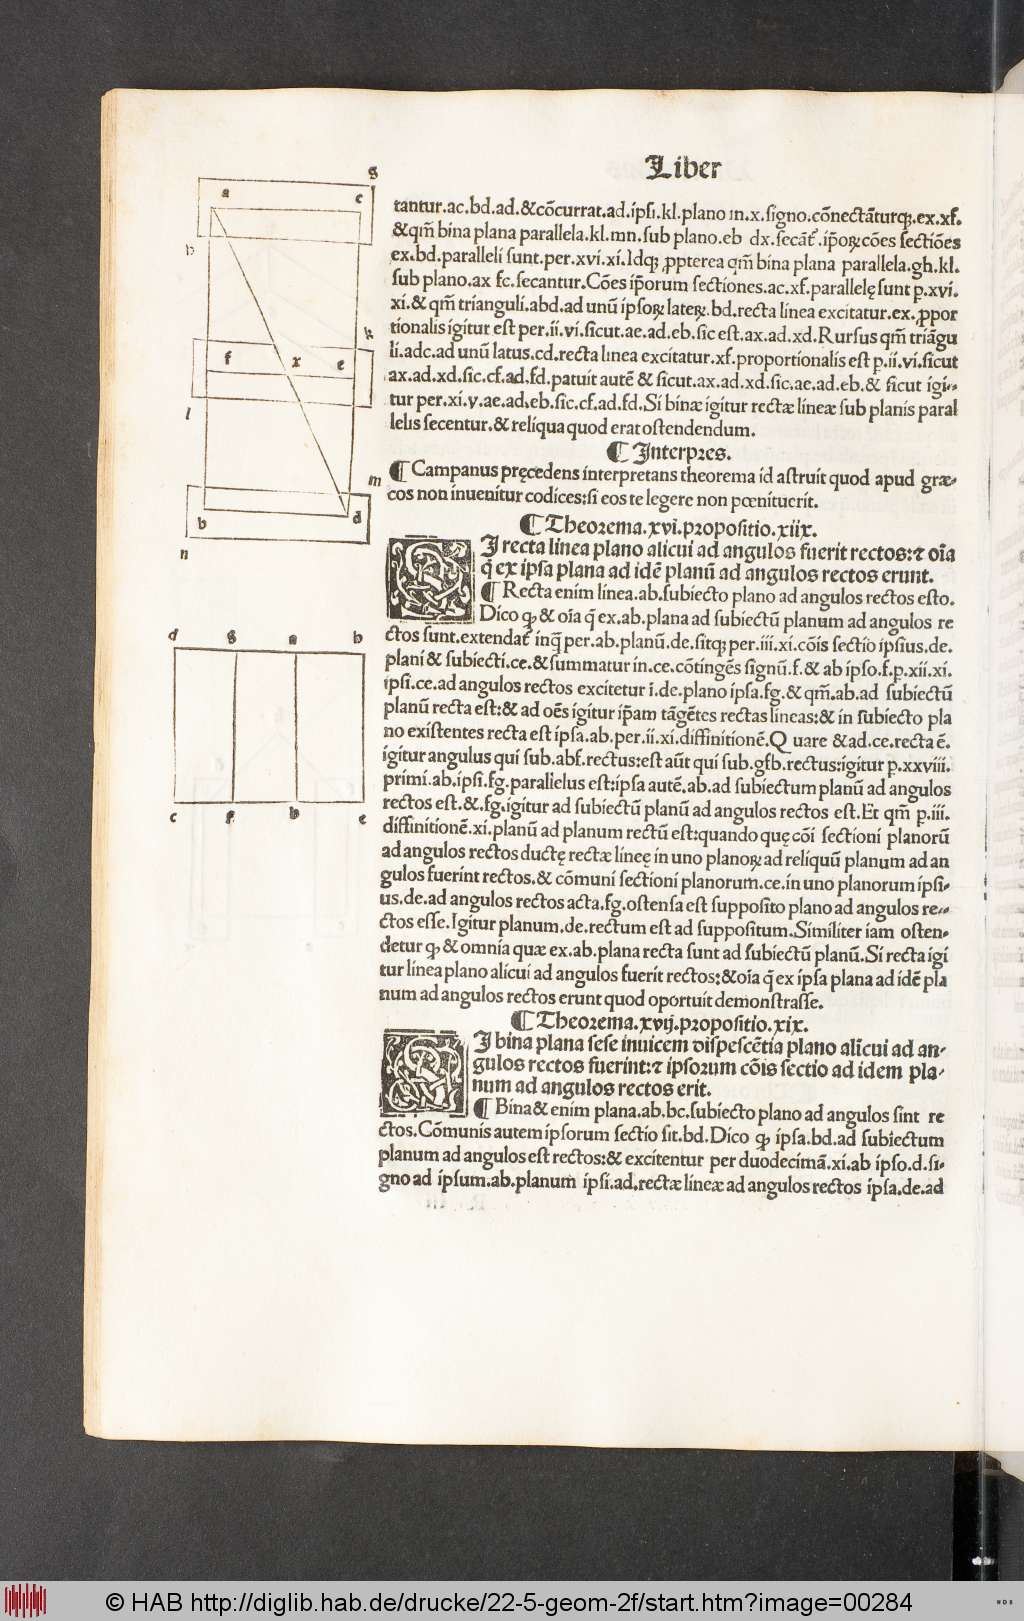 Liber
tantur.ac.bd.ad.&cōcurrat.ad.ipsi.kl.plano in.x.signo.cōnectāturqꝫ.ex.xf.
&qm̄ bina plana parallela.kl.mn.sub plano.eb dx.secāt᷑.ip̄oꝝ cōes sectiōes
ex.bd.paralleli sunt.per.xvi.xi.Idqꝫ ꝓpterea qm̄ bina plana parallela.gh.kl.
sub plano.ax fc.secantur.Cōes ip̄orum sectiones.ac.xf.parallelę sunt p̱.xvi.
xi.& qm̄ trianguli.abd.ad unū ipsoꝝ lateꝝ.bd.recta linea excitatur.ex.ꝓpor
tionalis igitur est per.ii.vi.sicut.ae.ad.eb.sic est.ax.ad.xd.Rursus qm̄ triāgu
li.adc.ad unū latus.cd.recta linea excitatur.xf.proportionalis est p̱.ii.vi.sicut
ax.ad.xd.sic.cf.ad.fd.patuit autē & sicut.ax.ad.xd.sic.ae.ad.eb.& sicut igi-
tur per.xi.v.ae.ad.eb.sic.cf.ad.fd.Si binæ igitur rectæ lineæ sub planis paral
lelis secentur.& reliqua quod erat ostendendum.
¶ Interpres.
¶ Campanus pręcedens interpretans theorema id astruit quod apud græ-
cos non inuenitur codices:si eos te legere non pœnituerit.
¶ Theorema.xvi.propositio.xiix.
SI recta linea plano alicui ad angulos fuerit rectos:⁊ oīa
q̄ ex ipsa plana ad idē planū ad angulos rectos erunt.
¶ Recta enim linea.ab.subiecto plano ad angulos rectos esto.
Dico qꝫ & oīa q̄ ex.ab.plana ad subiectū planum ad angulos re
ctos sunt.extendat᷑ inq̄ per.ab.planū.de.sitqꝫ per.iii.xi.cōis sectio ipsius.de.
plani & subiecti.ce.& summatur in.ce.cōtingēs signū.f.& ab ipso.f.p̱.xii.xi.
ipsi.ce.ad angulos rectos excitetur ī.de.plano ipsa.fg.& qm̄.ab.ad subiectū
planū recta est:& ad oēs igitur ip̄am tāgētes rectas lineas:& in subiecto pla
no existentes recta est ipsa.ab.per.ii.xi.diffinitionē.Quare & ad.ce.recta ē.
igitur angulus qui sub.abf.rectus:est aūt qui sub.gfb.rectus:igitur p̱.xxviii.
primi.ab.ipsi.fg.parallelus est:ipsa autē.ab.ad subiectum planū ad angulos
rectos est.&.fg.igitur ad subiectū planū ad angulos rectos est.Et qm̄ p̱.iii.
diffinitionē.xi.planū ad planum rectū est:quando quę cōi sectioni planorū
ad angulos rectos ductę rectæ lineę in uno planoꝝ ad reliquū planum ad an
gulos fuerint rectos.& cōmuni sectioni planorum.ce.in uno planorum ipsi-
us.de.ad angulos rectos acta.fg.ostensa est supposito plano ad angulos re-
ctos esse.Igitur planum.de.rectum est ad suppositum.Similiter iam osten-
detur qꝫ & omnia quæ ex.ab.plana recta sunt ad subiectū planū.Si recta igi
tur linea plano alicui ad angulos fuerit rectos:&oīa q̄ ex ipsa plana ad idē pla
num ad angulos rectos erunt quod oportuit demonstrasse.
¶ Theorema.xvij.propositio.xix.
SI bina plana sese inuicem dispescētia plano alicui ad an-
gulos rectos fuerint:⁊ ipsorum cōis sectio ad idem pla-
num ad angulos rectos erit.
¶ Bina & enim plana.ab.bc.subiecto plano ad angulos sint re
ctos.Cōmunis autem ipsorum sectio sit.bd.Dico qꝫ ipsa.bd.ad subiectum
planum ad angulos est rectos:& excitentur per duodecimā.xi.ab ipso.d.si-
gno ad ipsum.ab.planum ipsi.ad.rectæ lineæ ad angulos rectos ipsa.de.ad
g
a c
h
k
f x e
l
m
b d
n
d g a b
c f b e
© HAB http://diglib.hab.de/drucke/22-5-geom-2f/start.htm?image=00284